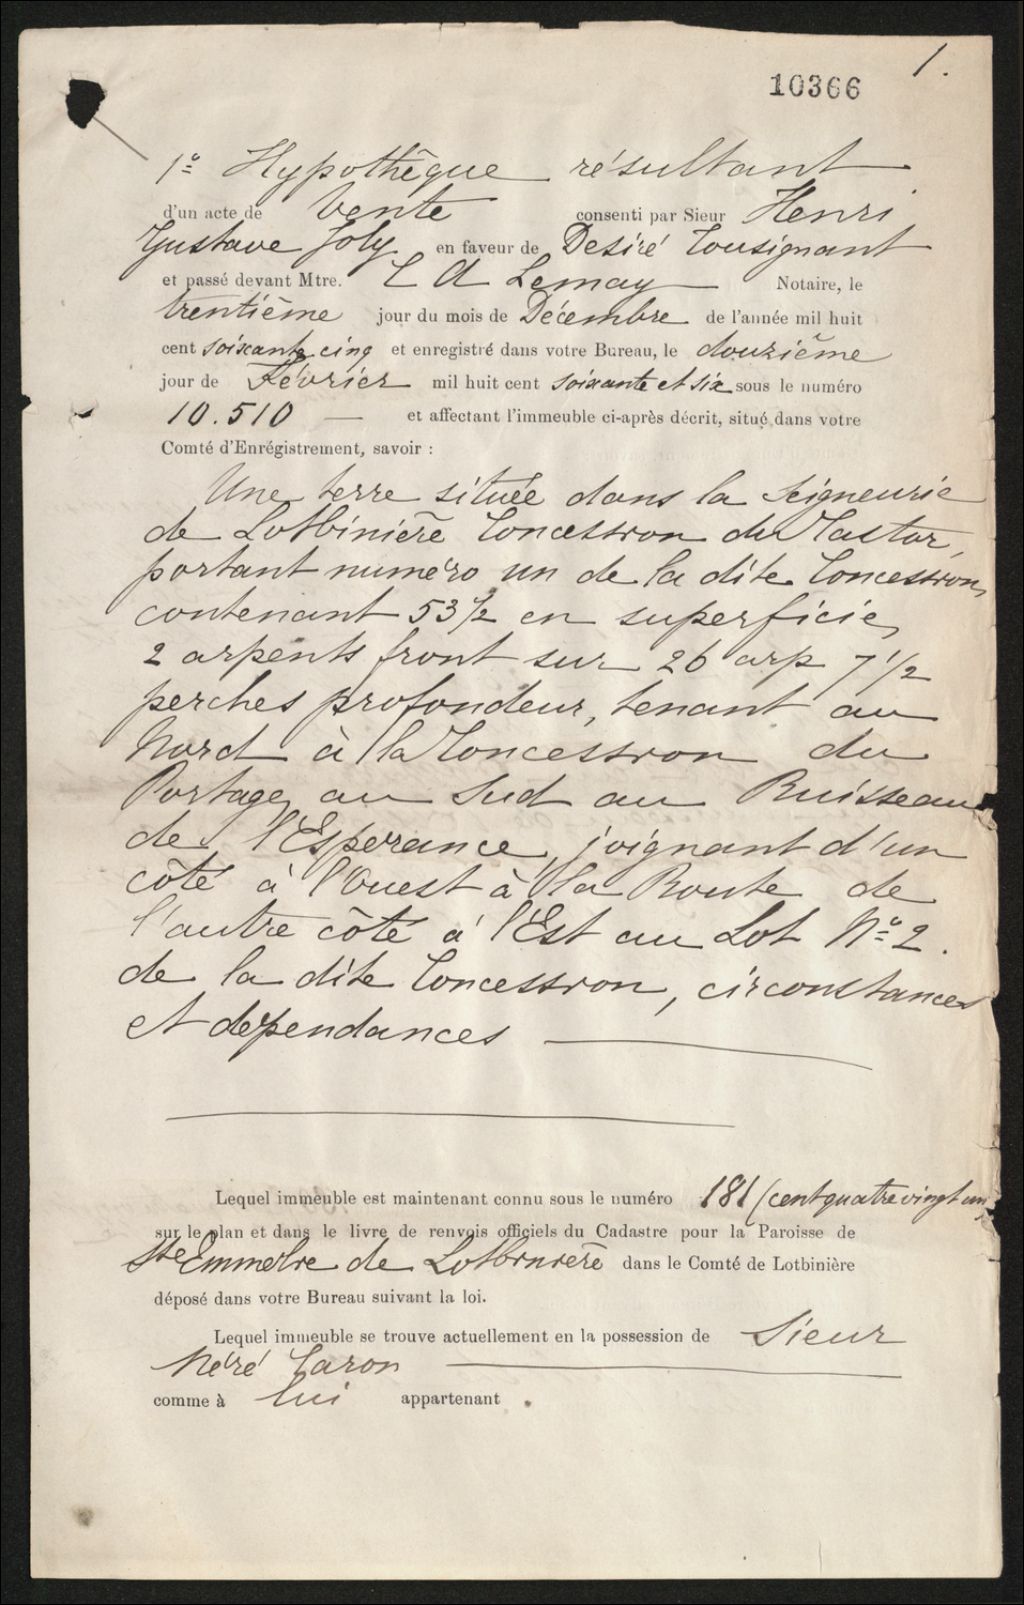 1.
10366
1º Hypothèque résultant
d'un acte de Vente consenti par Sieur Henri
Gustave Joly en faveur de Desiré Tousignant
et passé devant Mtre. C A Lemay Notaire, le
trentième jour du mois de Décembre de l'année mil huit
cent soixante cinq et enregistré dans votre Bureau, le douzième
jour de Février mil huit cent soixante et six sous le numéro
10.510 et affectant l'immeuble ci-après décrit, situé dans votre
Comté d'Enrégistrement, savoir :
Une terre située dans la Seigneurie
de Lotbinière Concession du Castor,
portant numéro un de la dite Concession,
contenant 53½ en superficie,
2 arpents front sur 26 arp 7½
perches profondeur, tenant au
Nord à la Concession du
Portage, au Sud au Ruisseau
de l'Esperance, joignant d'un
côté à l'Ouest à la Route de
l'autre côté à l'Est au Lot Nº 2.
de la dite Concession, circonstances
et dependances
Lequel immeuble est maintenant connu sous le numéro 181 (cent quatre vingt un)
sur le plan et dans le livre de renvois officiels du Cadastre pour la Paroisse de
Ste Emmelie de Lotbinière dans le Comté de Lotbinière
déposé dans votre Bureau suivant la loi.
Lequel immeuble se trouve actuellement en la possession de Sieur
Néré Caron
comme à lui appartenant .